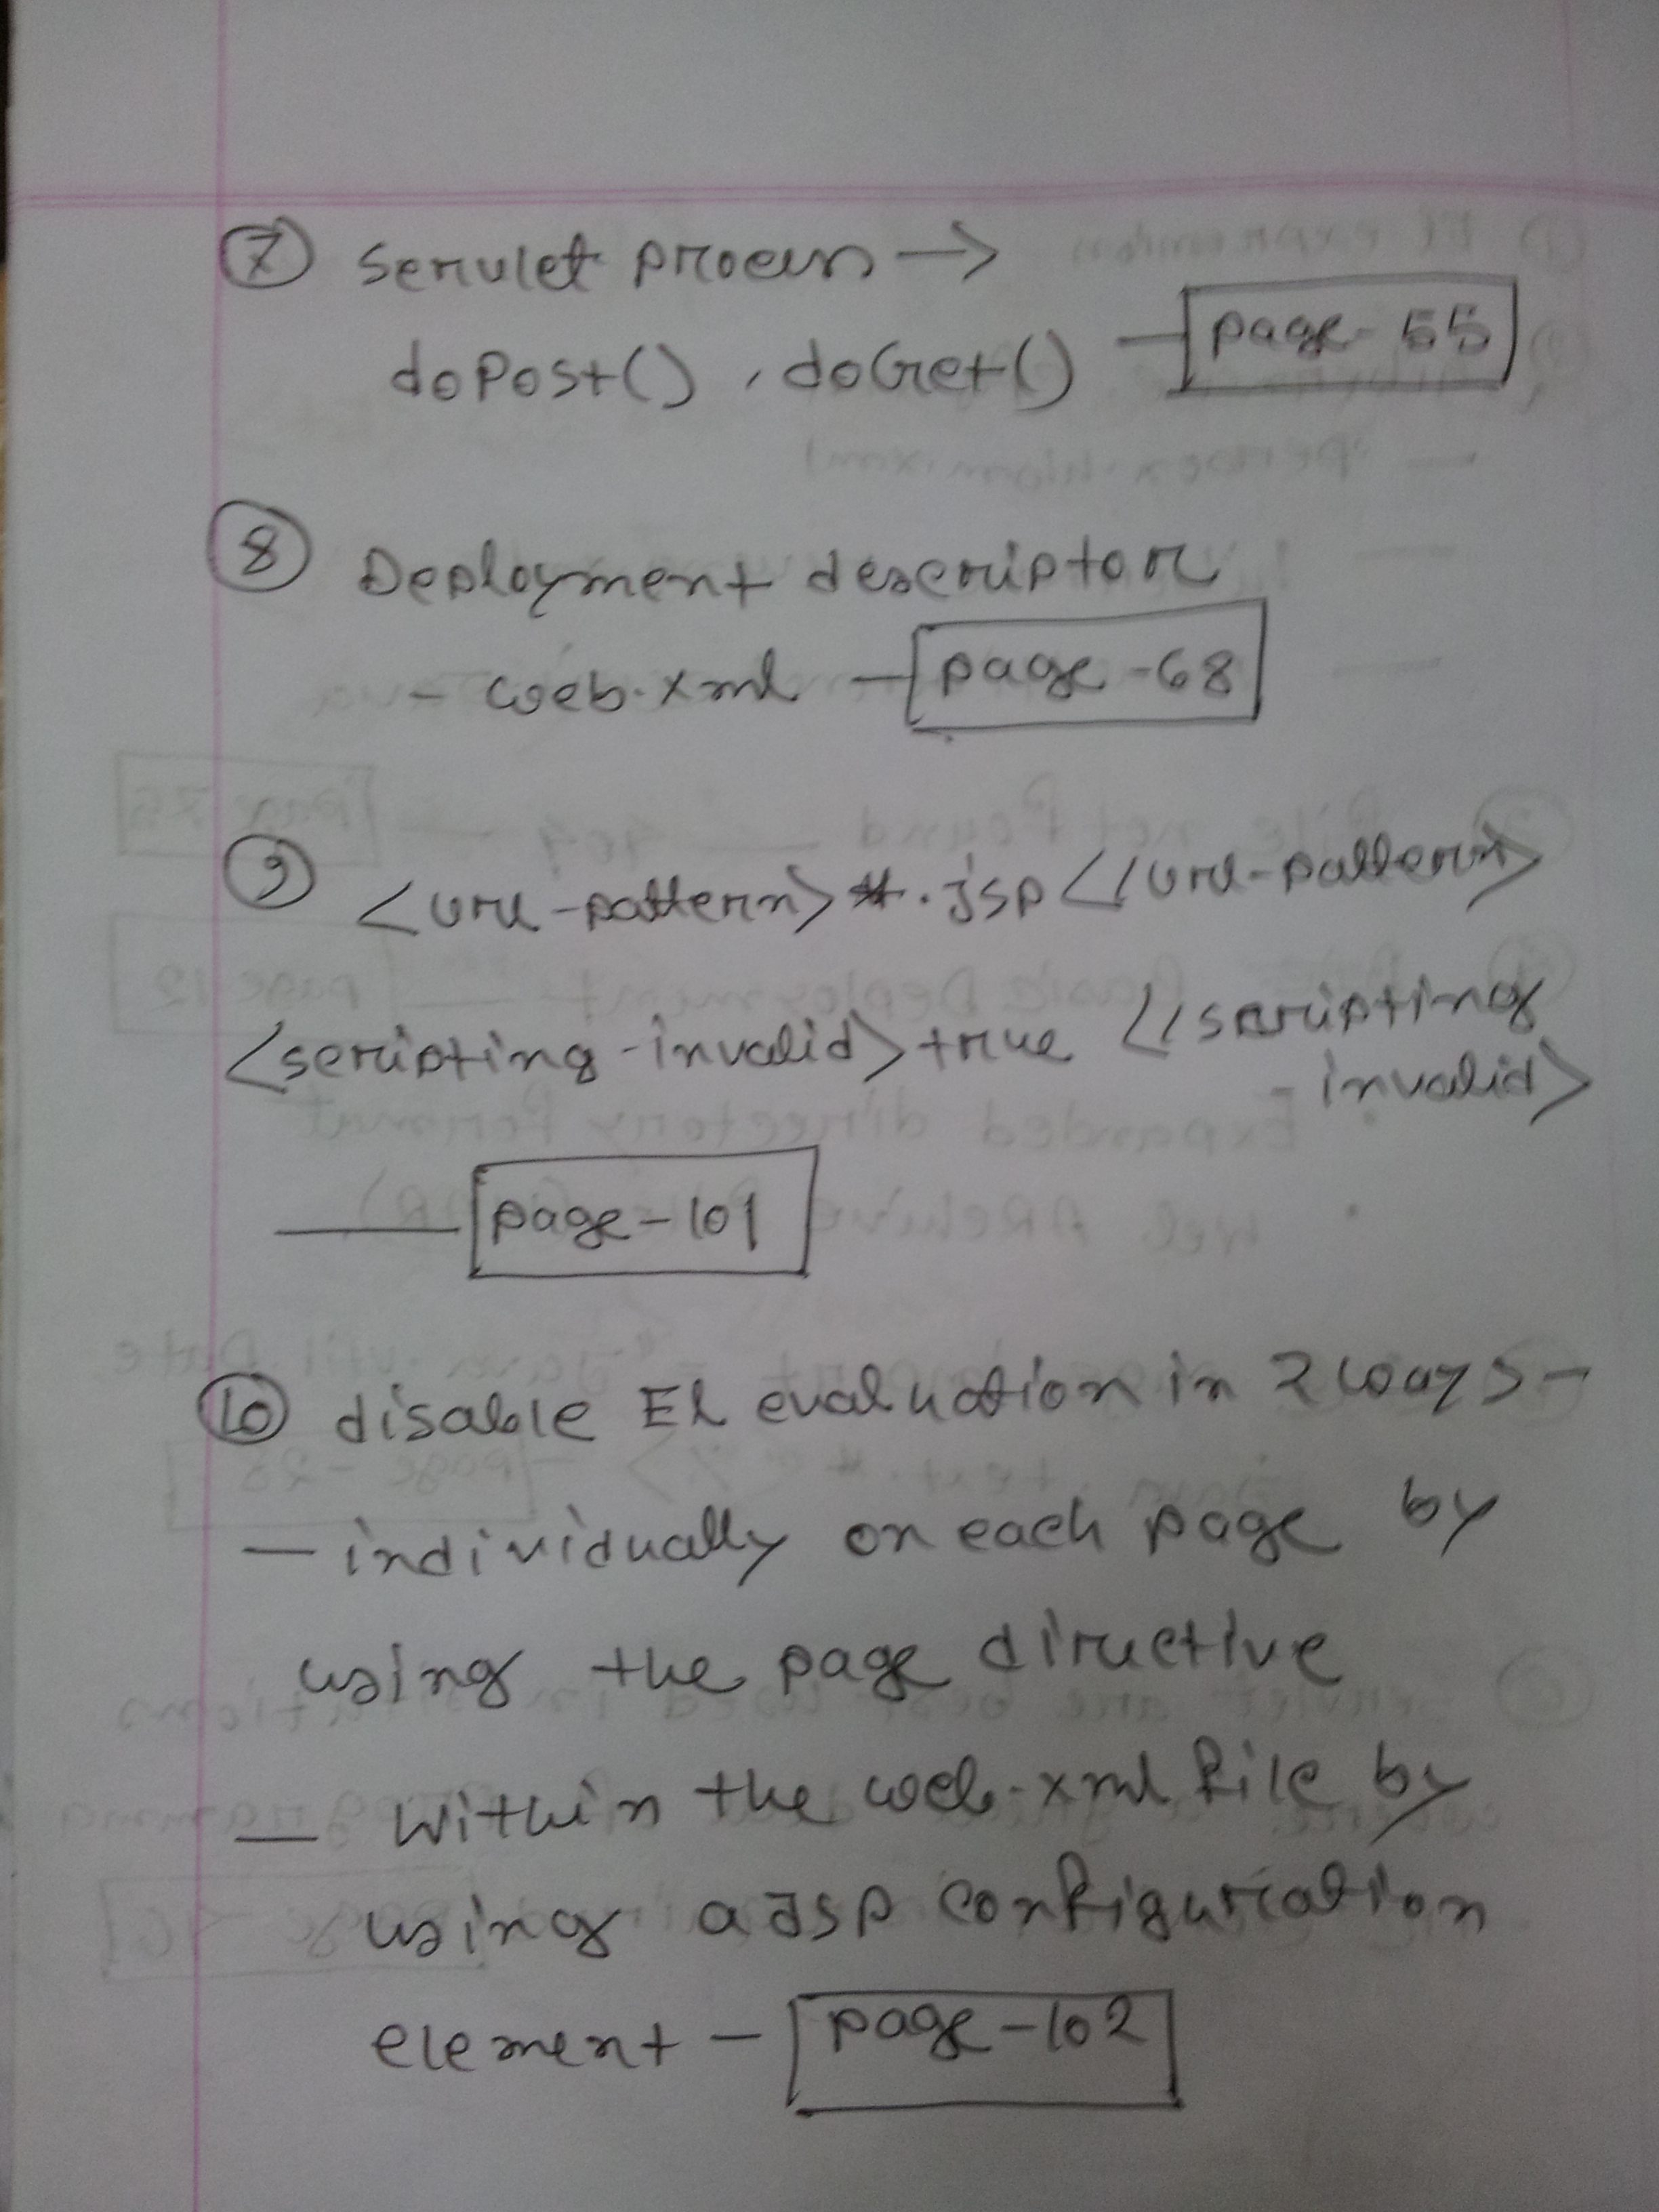 ⑦ servlet process →
doPost() , doGet() — page-55
⑧ Deployment descriptor
- web.xml — page-68
⑨ <url-pattern> *.jsp </url-pattern>
<scripting-invalid> true </scripting
-invalid>
— page-101
⑩ disable EL evaluation in 2 ways -
— individually on each page by
using the page directive
— Within the web.xml file by
using a JSP configuration
element - page-102